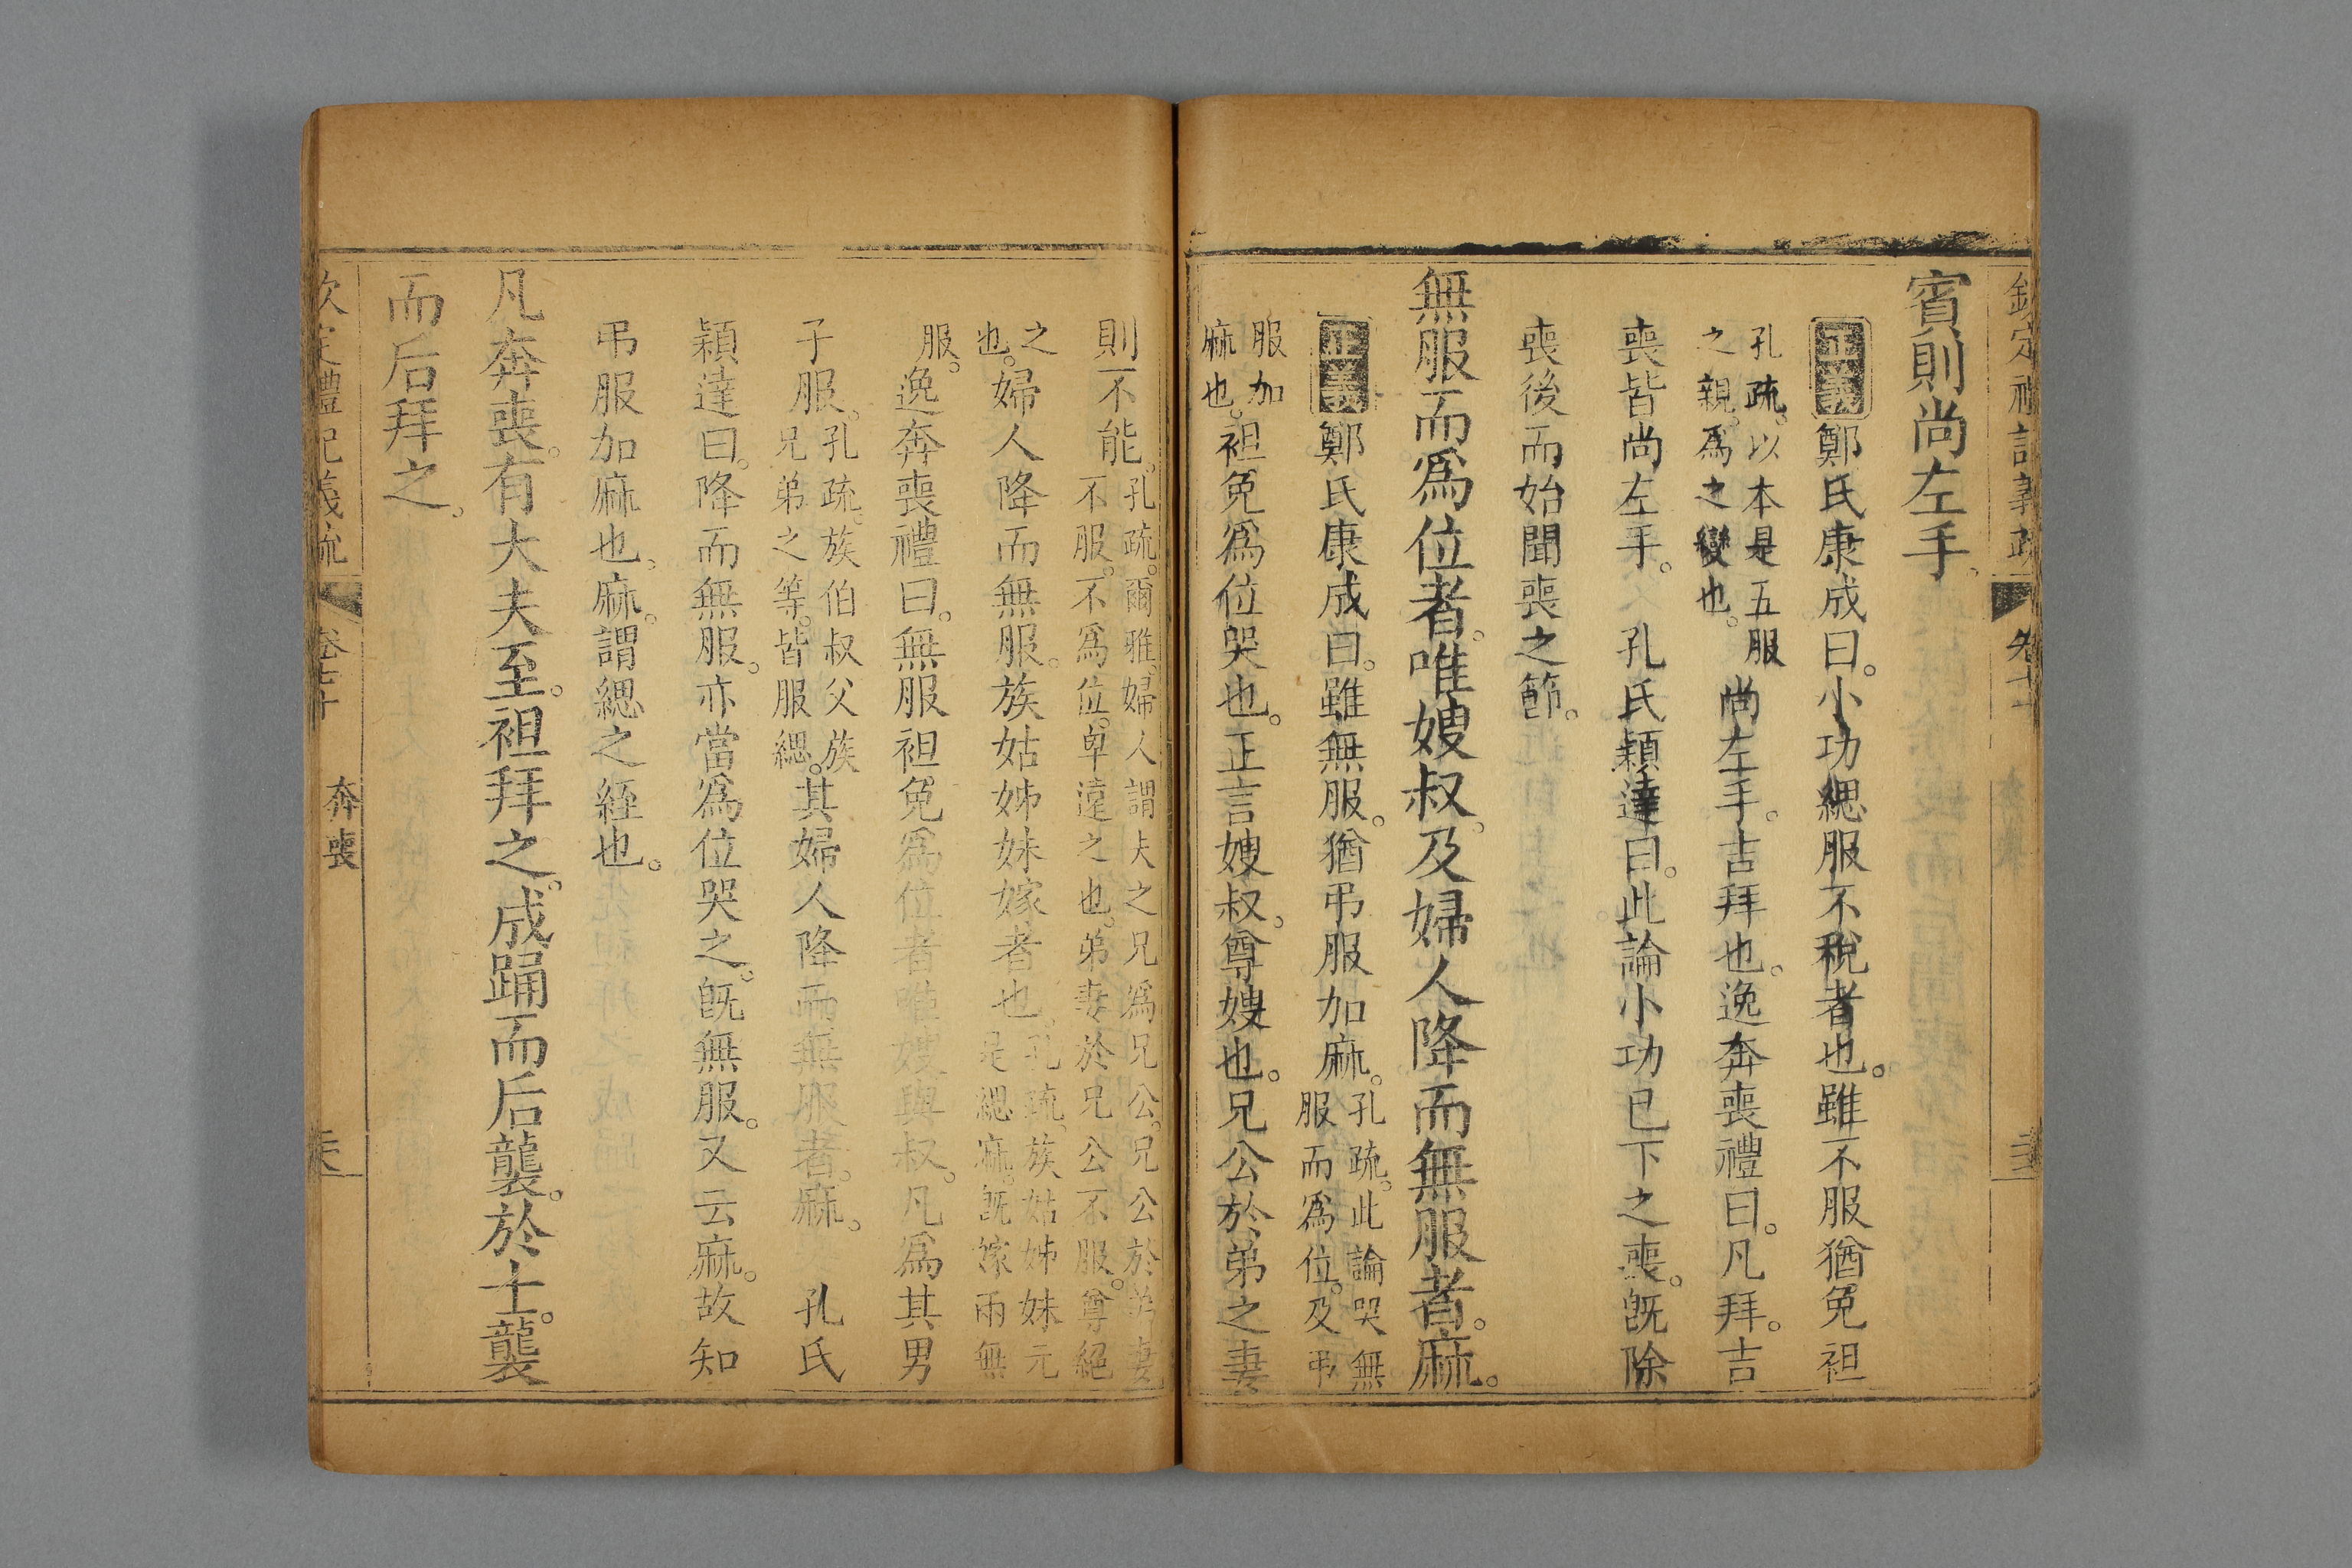 賓則尚左手。
正義鄭氏康成曰。小功緦服不稅者也。雖不服猶免袒
孔疏。以本是五服
之親。爲之變也。
尚左手。吉拜也。逸奔喪禮曰。凡拜。吉
喪皆尚左手。 孔氏穎達曰。此論小功已下之喪。旣除
喪後而始聞喪之節。
無服而爲位者。唯嫂叔。及婦人降而無服者。麻。
正義鄭氏康成曰。雖無服。猶弔服加麻。
孔疏。此論哭無
服而爲位。及弔
服加
麻也。
袒免爲位哭也。正言嫂叔。尊嫂也。兄公於弟之妻
則不能。
孔疏。爾雅。婦人謂夫之兄爲兄公。兄公於弟妻
不服。不爲位。卑遠之也。弟妻於兄公不服。尊絕
之
也。
婦人降而無服。族姑姊妹嫁者也。
孔疏。族姑姊妹元
是緦麻。旣嫁兩無
服。
逸奔喪禮曰。無服袒免爲位者唯嫂與叔。凡爲其男
子服。
孔疏。族伯叔父族
兄弟之等。皆服緦。
其婦人降而無服者。麻。 孔氏
穎達曰。降而無服。亦當爲位哭之。旣無服。又云麻。故知
弔服加麻也。麻。謂緦之絰也。
凡奔喪。有大夫至。袒拜之。成踊而后襲。於士。襲
而后拜之。
卷七十
奔喪